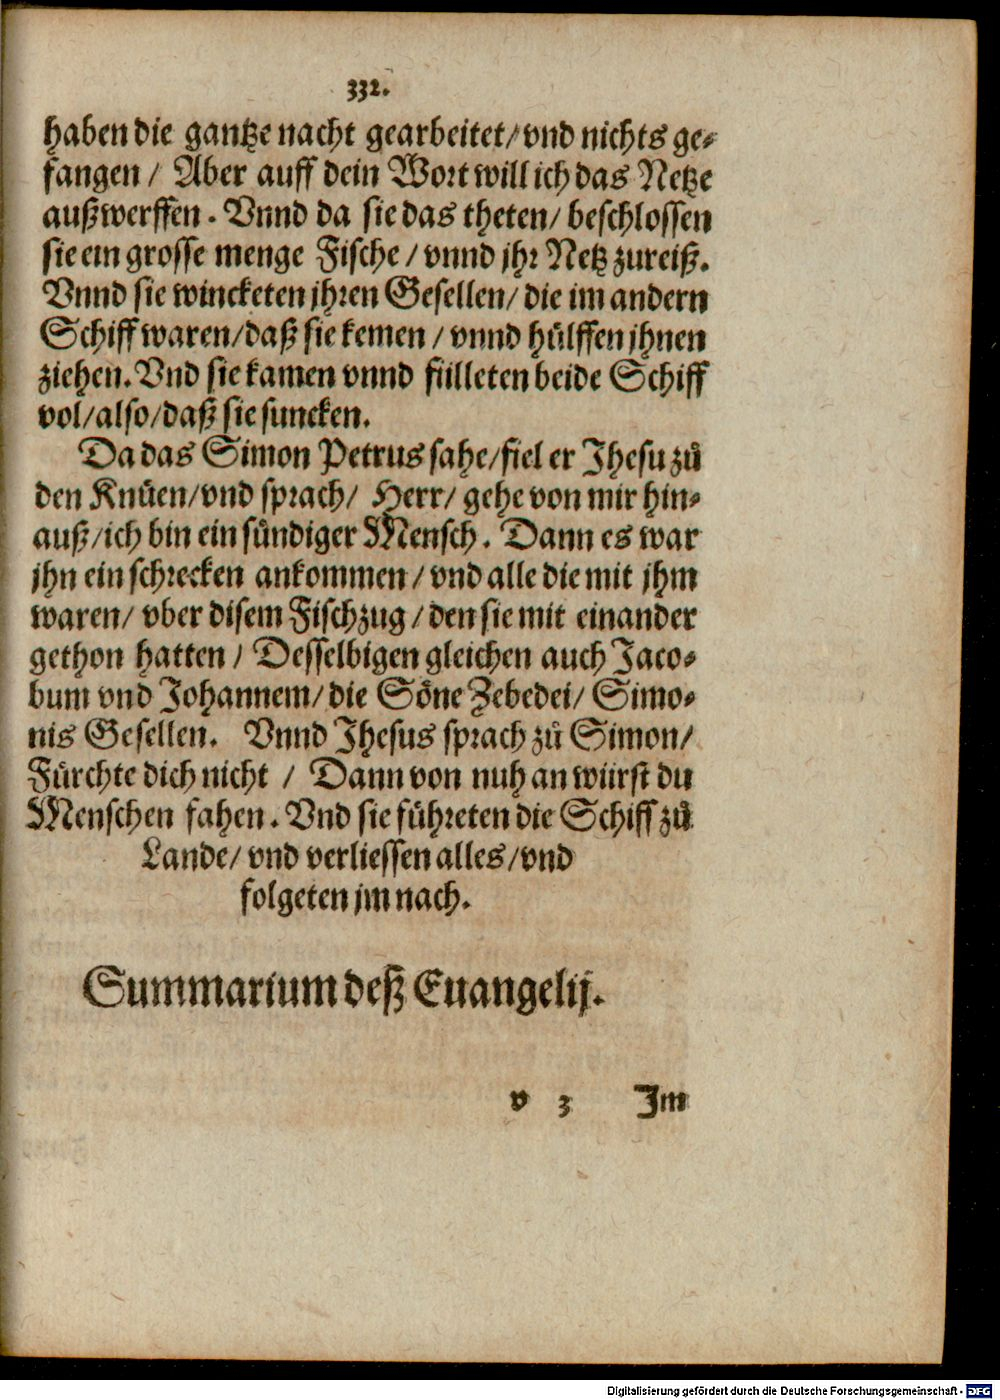 332.
haben die gantze nacht gearbeitet/ vnd nichts ge-
fangen / Aber auff dein Wort will ich das Netze
außwerffen. Vnnd da sie das theten/ beschlossen
sie ein grosse menge Fische / vnnd jhr Netz zureiß.
Vnnd sie wincketen jhren Gesellen/ die im andern
Schiff waren/daß sie kemen / vnnd hülffen jhnen
ziehen. Vnd sie kamen vnnd fülleten beide Schiff
vol/also/daß sie suncken.
Da das Simon Petrus sahe/fiel er Jhesu zů
den Knüen/vnd sprach/ Herr/ gehe von mir hin-
auß/ich bin ein sündiger Mensch. Dann es war
jhn ein schrecken ankommen / vnd alle die mit jhm
waren/ vber disem Fischzug / den sie mit einander
gethon hatten / Desselbigen gleichen auch Jaco-
bum vnd Johannem/ die Söne Zebedei/ Simo-
nis Gesellen. Vnnd Jhesus sprach zů Simon/
Fürchte dich nicht / Dann von nuh an würst du
Menschen fahen. Vnd sie führeten die Schiff zů
Lande/ vnd verliessen alles/vnd
folgeten jm nach.
Summarium deß Euangelij.
v 3 Jm
Digitalisierung gefördert durch die Deutsche Forschungsgemeinschaft - DFG